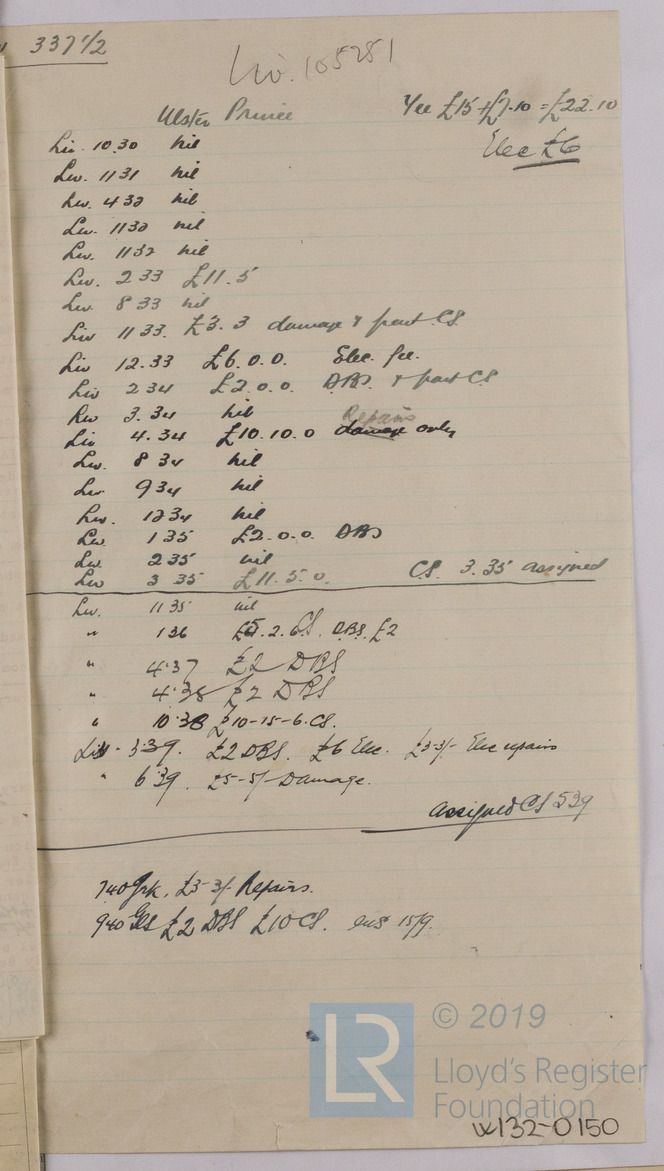 337 1/2
Liv. 105281
Ulster Prince
Fee £15 + £7.10 = £22.10
Elec £6
Liv. 10.30 nil
Liv. 11 31 nil
Liv. 4 32 nil
Liv. 11 32 nil
Liv. 11 32 nil
Liv. 2 33 £11.5
Liv 8 33 nil
Liv 11 33. £3.3 damage & part CS
Liv 12.33 £6.0.0. Elec. fee.
Liv 2 34 £2.0.0. DBS. & part CS
Liv 3.34 nil
Repairs
Liv 4.34 £10.10.0 damage only
Liv. 8 34 nil
Liv 9 34 nil
Liv. 12 34 nil
Liv. 1 35 £2.0.0. DBS
Liv. 2 35 nil
Liv 3 35 £11.5.0. CS. 3.35 assigned
Liv. 11 35 nil
" 1 36 £5.2.6 CS. DBS. £2
" 4.37 £2 DBS
" 4.38 £2 DBS
" 10.38 £10-15-6. CS.
Liv. 5.39. £2 DBS. £6 Elec. £3-3/- Elec repairs
" 6 39. £5-5/- Damage.
assigned CS 5 39
7 40 Grk. £3-3/- Repairs.
9 40 Gls £2 DBS £10 CS. 15/9.
LR
© 2019
Lloyd's Register
Foundation
W132-0150